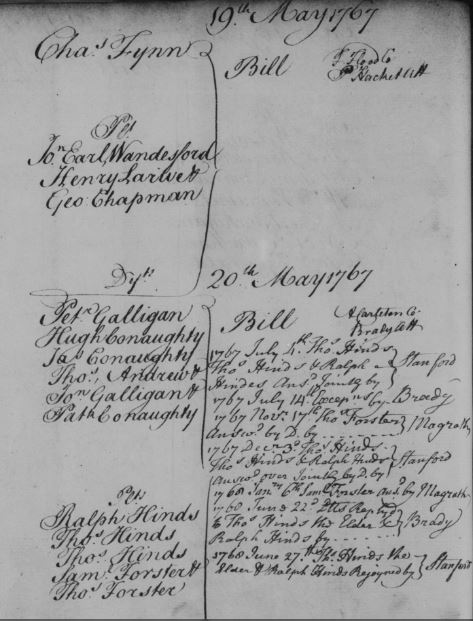 19th May 1767
Chas Fynn
Bill
F Flood Co
P Hacket Att
Pet
Jon Earl Wandesford
Henry
Geo Chapman
20th May 1767
Petr Galligan
Hugh Conaughty
Jas Conaughty
Thos Andrew &
Jon Galligan &
Patk Conaughty
Bill
Carleton Co
Brady Att
1767 July 4th Thos Hinds
Thos Hinds & Ralph
Hindes Ansd Jointly by
Stanford
1767 July 14th Excepns by Brady
1767 Novr 17th Thos Forster
Answd by D. by
Magrath
1767 Decr 3d Thos Hinds
Thos Hinds & Ralph Hinds
Answd over Jointly by D. by
Stanford
1768 Janry 6th Saml Forster Ansd by Magrath
1768 June 22d Repld
to Thos Hinds the Elder &
Ralph Hinds by
Brady
1768 June 27th Thos Hinds the
Elder & Ralph Hinds Rejoyned by
Stanford
Ralph Hinds
Thos Hinds
Thos Hinds
Saml Forster &
Thos Forster